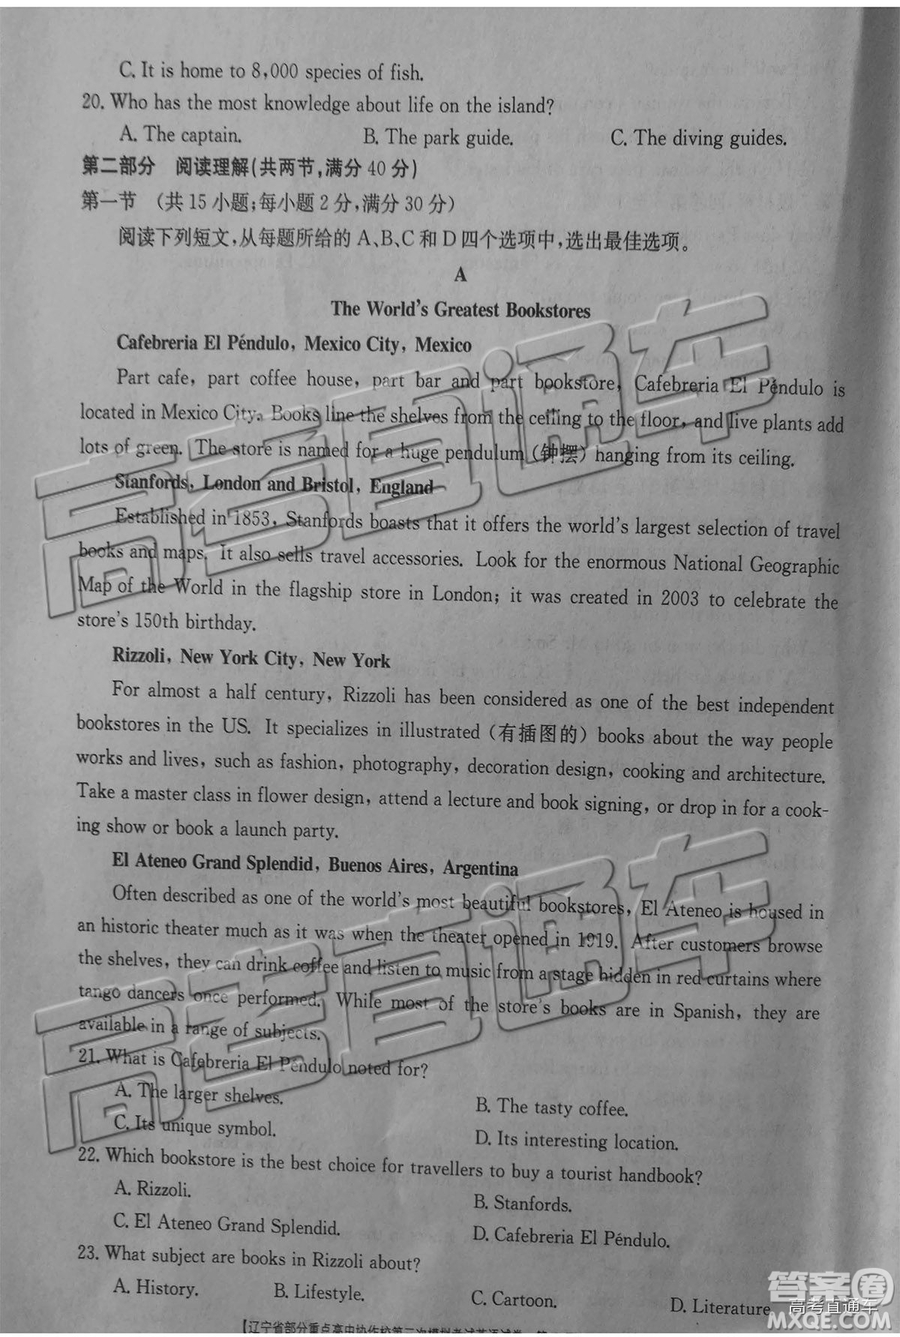 C. It is home to 8,000 species of fish.
20. Who has the most knowledge about life on the island?
A. The captain. B. The park guide. C. The diving guides.
第二部分 阅读理解(共两节,满分 40 分)
第一节 (共 15 小题;每小题 2 分,满分 30 分)
阅读下列短文,从每题所给的 A、B、C 和 D 四个选项中,选出最佳选项。
A
The World's Greatest Bookstores
Cafebreria El Péndulo, Mexico City, Mexico
Part cafe, part coffee house, part bar and part bookstore, Cafebreria El Péndulo is
located in Mexico City. Books line the shelves from the ceiling to the floor, and live plants add
lots of green. The store is named for a huge pendulum (钟摆) hanging from its ceiling.
Stanfords, London and Bristol, England
Established in 1853, Stanfords boasts that it offers the world's largest selection of travel
books and maps. It also sells travel accessories. Look for the enormous National Geographic
Map of the World in the flagship store in London; it was created in 2003 to celebrate the
store's 150th birthday.
Rizzoli, New York City, New York
For almost a half century, Rizzoli has been considered as one of the best independent
bookstores in the US. It specializes in illustrated (有插图的) books about the way people
works and lives, such as fashion, photography, decoration design, cooking and architecture.
Take a master class in flower design, attend a lecture and book signing, or drop in for a cook-
ing show or book a launch party.
El Ateneo Grand Splendid, Buenos Aires, Argentina
Often described as one of the world's most beautiful bookstores, El Ateneo is housed in
an historic theater much as it was when the theater opened in 1919. After customers browse
the shelves, they can drink coffee and listen to music from a stage hidden in red curtains where
tango dancers once performed. While most of the store's books are in Spanish, they are
available in a range of subjects.
21. What is Cafebreria El Péndulo noted for?
A. The larger shelves. B. The tasty coffee.
C. Its unique symbol. D. Its interesting location.
22. Which bookstore is the best choice for travellers to buy a tourist handbook?
A. Rizzoli. B. Stanfords.
C. El Ateneo Grand Splendid. D. Cafebreria El Péndulo.
23. What subject are books in Rizzoli about?
A. History. B. Lifestyle. C. Cartoon. D. Literature
【辽宁省部分重点高中协作校第二次模拟考试英语试卷
高考直通车
高考直通车
答案圈
高考直通车
MXQE.COM